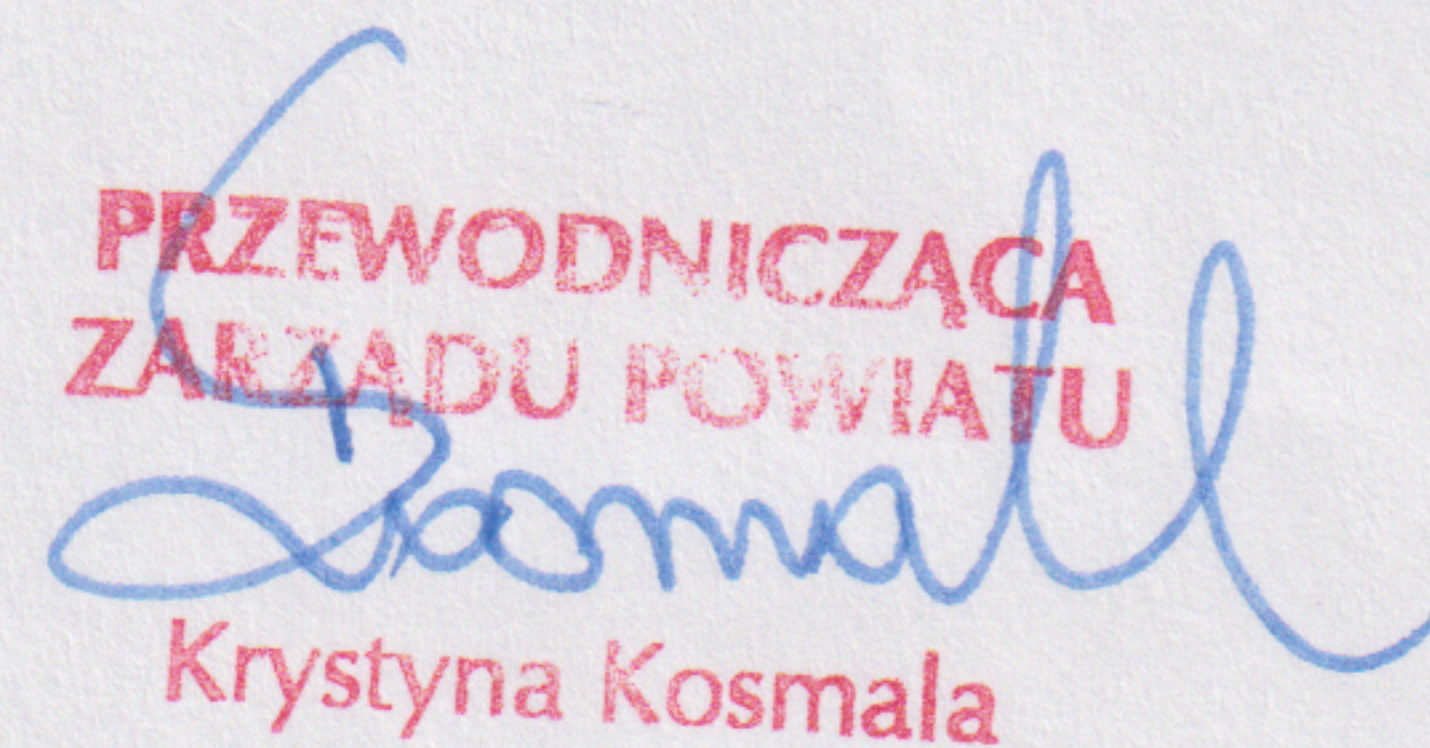 PRZEWODNICZĄCA
ZARZĄDU POWIATU
Krystyna Kosmala